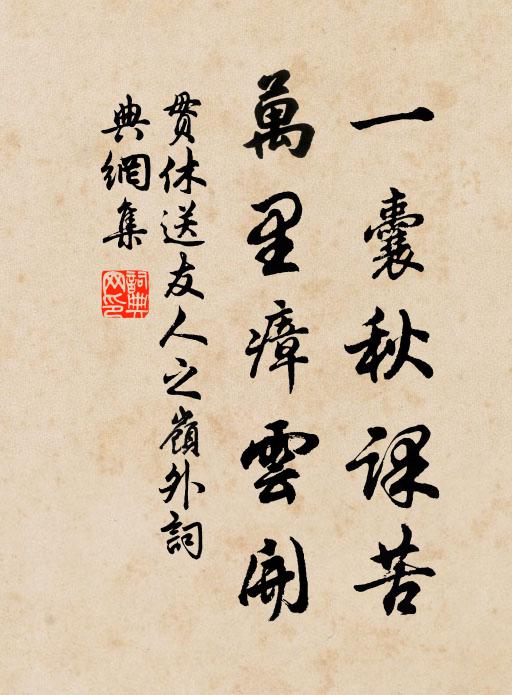 一囊秋課苦
萬里瘴雲開
貫休送友人之嶺外詞
典網集
詞典网印